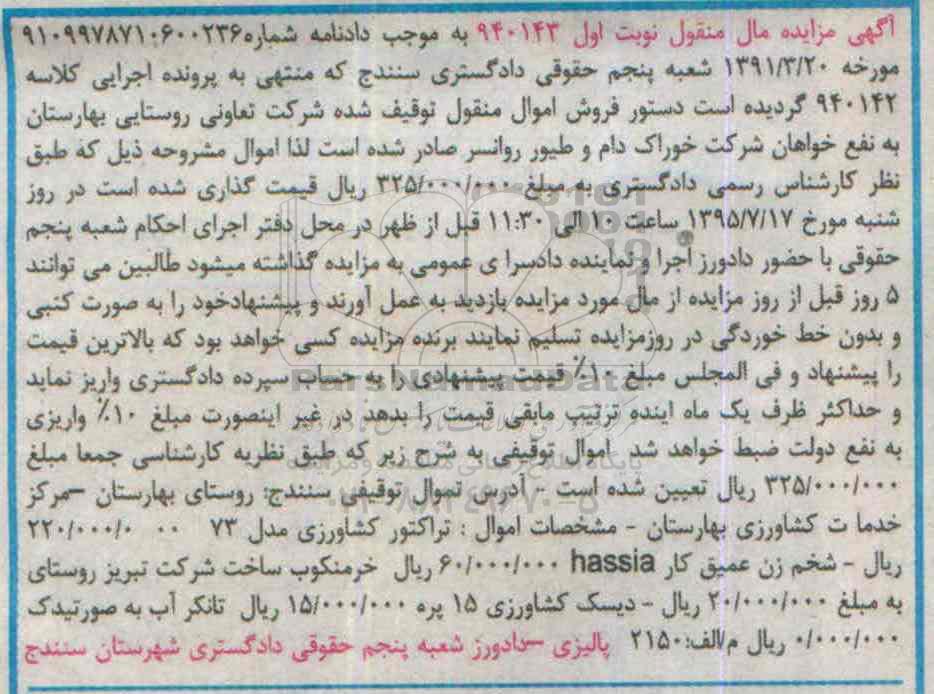 آگهی مزایده مال منقول نوبت اول ۹۴۰۱۴۳ به موجب دادنامه شماره ۹۱۰۹۹۷۸۷۱۰۶۰۰۲۳۶
مورخه ۱۳۹۱/۳/۲۰ شعبه پنجم حقوقی دادگستری سنندج که منتهی به پرونده اجرایی کلاسه
۹۴۰۱۴۲ گردیده است دستور فروش اموال منقول توقیف شده شرکت تعاونی روستایی بهارستان
به نفع خواهان شرکت خوراک دام و طیور روانسر صادر شده است لذا اموال مشروحه ذیل که طبق
نظر کارشناس رسمی دادگستری به مبلغ ۳۲۵/۰۰۰/۰۰۰ ریال قیمت گذاری شده است در روز
شنبه مورخ ۱۳۹۵/۷/۱۷ ساعت ۱۰ الی ۱۱:۳۰ قبل از ظهر در محل دفتر اجرای احکام شعبه پنجم
حقوقی با حضور دادورز اجرا و نماینده دادسرا ی عمومی به مزایده گذاشته میشود طالبین می توانند
۵ روز قبل از روز مزایده از مال مورد مزایده بازدید به عمل آورند و پیشنهادخود را به صورت کتبی
و بدون خط خوردگی در روزمزایده تسلیم نمایند برنده مزایده کسی خواهد بود که بالاترین قیمت
را پیشنهاد و فی المجلس مبلغ ۱۰٪ قیمت پیشنهادی را به حساب سپرده دادگستری واریز نماید
و حداکثر ظرف یک ماه اینده ترتیب مابقی قیمت را بدهد در غیر اینصورت مبلغ ۱۰٪ واریزی
به نفع دولت ضبط خواهد شد اموال توقیفی به شرح زیر که طبق نظریه کارشناسی جمعا مبلغ
۳۲۵/۰۰۰/۰۰۰ ریال تعیین شده است - آدرس اموال توقیفی سنندج: روستای بهارستان –مرکز
خدما ت کشاورزی بهارستان - مشخصات اموال : تراکتور کشاورزی مدل ۷۳ ۰۰ ۲۲۰/۰۰۰/۰
ریال - شخم زن عمیق کار hassia ۶۰/۰۰۰/۰۰۰ ریال خرمنکوب ساخت شرکت تبریز روستای
به مبلغ ۲۰/۰۰۰/۰۰۰ ریال - دیسک کشاورزی ۱۵ پره ۱۵/۰۰۰/۰۰۰ ریال تانکر آب به صورتیدک
۰/۰۰۰/۰۰۰ ریال م/الف:۲۱۵۰ پالیزی –دادورز شعبه پنجم حقوقی دادگستری شهرستان سنندج
ParsNamadData